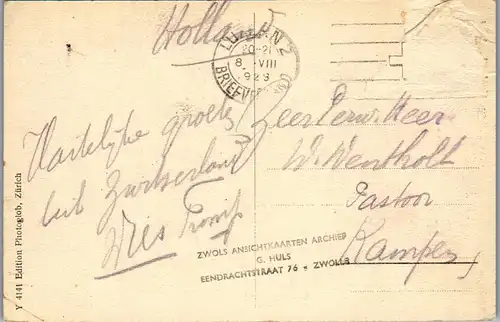 Holland
LUZERN 2
20-21
8. VIII
1929
BRIEFVERS.
Hartelijke groeten
uit Zwitserland
Wies
Zeer Eerw. Heer
W. Wentholt
Pastoor
Kampen
ZWOLS ANSICHTKAARTEN ARCHIEF
G. HULS
EENDRACHTSTRAAT 76 - ZWOLLE
Y 4141 Edition Photoglob, Zürich